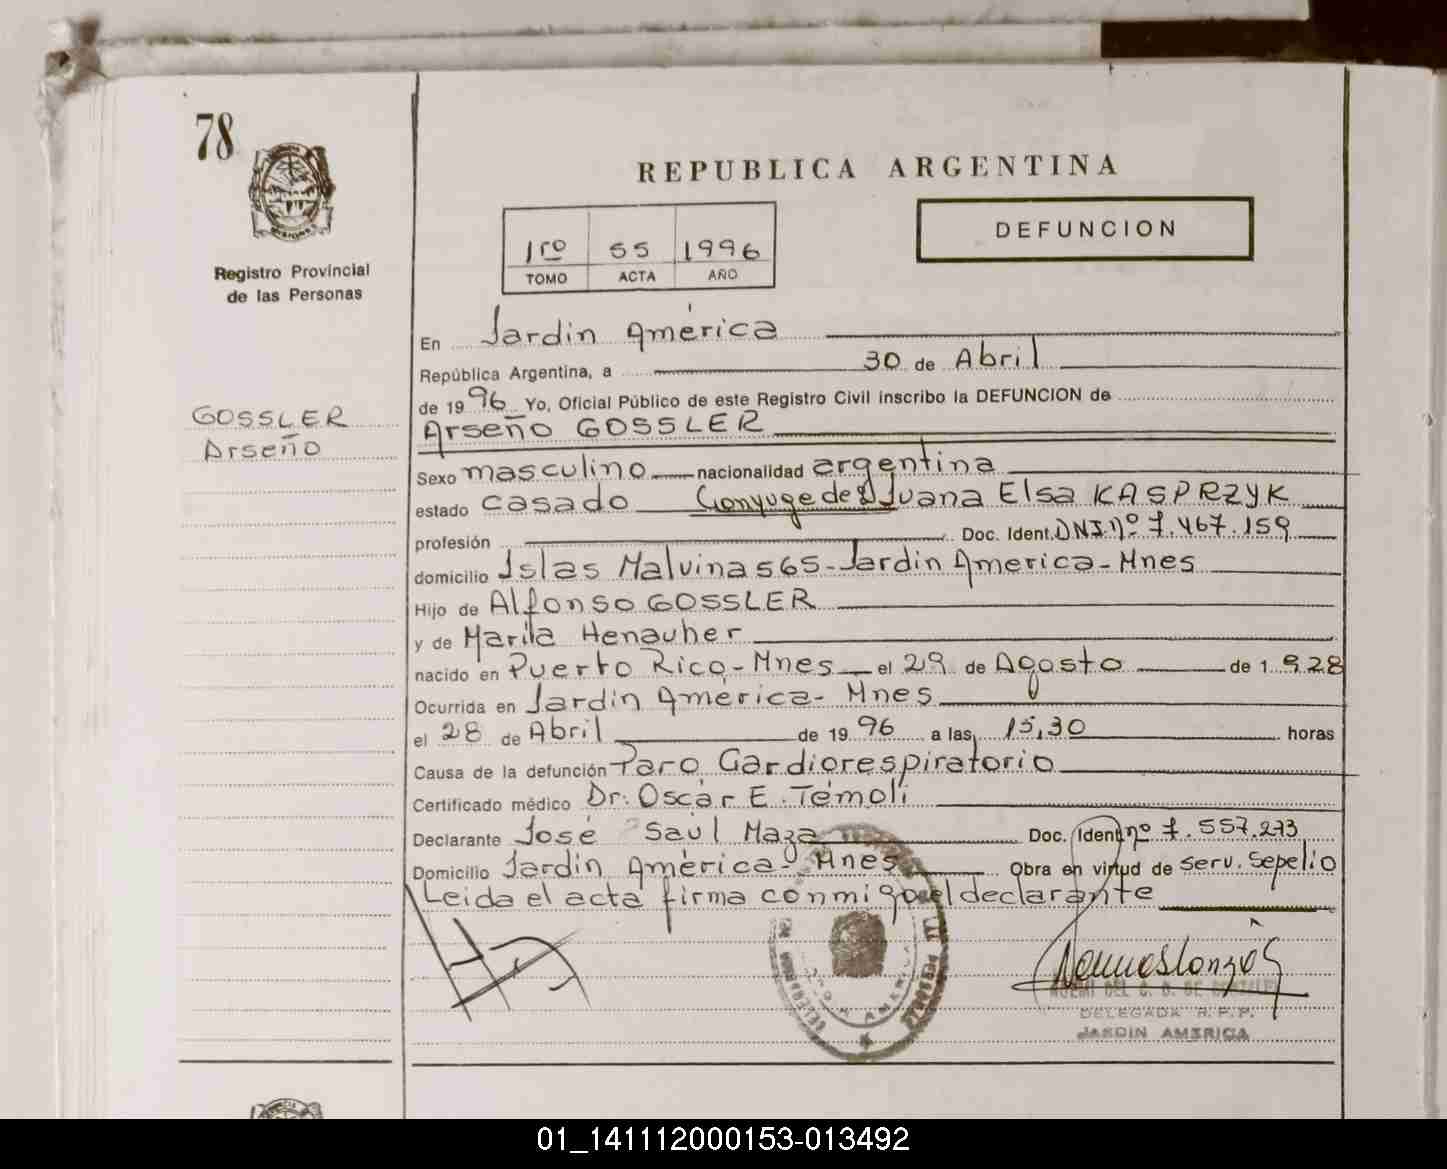 78
REPUBLICA ARGENTINA
DEFUNCION
1ro 55 1996
TOMO ACTA AÑO
Registro Provincial
de las Personas
GOSSLER
Arseño
En Jardin América
República Argentina, a 30 de Abril
de 19 96 Yo, Oficial Público de este Registro Civil inscribo la DEFUNCION de
Arseño GOSSLER
Sexo masculino nacionalidad argentina
estado casado Conyuge de Juana Elsa KASPRZYK
profesión Doc. Ident. DNI. nº 7.467.159
domicilio Islas Malvinas 565 - Jardin America - Mnes
Hijo de Alfonso GOSSLER
y de Marila Henauher
nacido en Puerto Rico - Mnes el 29 de Agosto de 1.928
Ocurrida en Jardin América - Mnes
el 28 de Abril de 19 96 a las 15,30 horas
Causa de la defunción Paro Cardiorespiratorio
Certificado médico Dr. Oscar E. Témoli
Declarante José Saúl Maza Doc. Ident. nº 7.557.273
Domicilio Jardin América - Mnes Obra en virtud de serv. Sepelio
Leida el acta firma conmigo el declarante
DELEGADA R.P.P.
JARDIN AMERICA
01_141112000153-013492